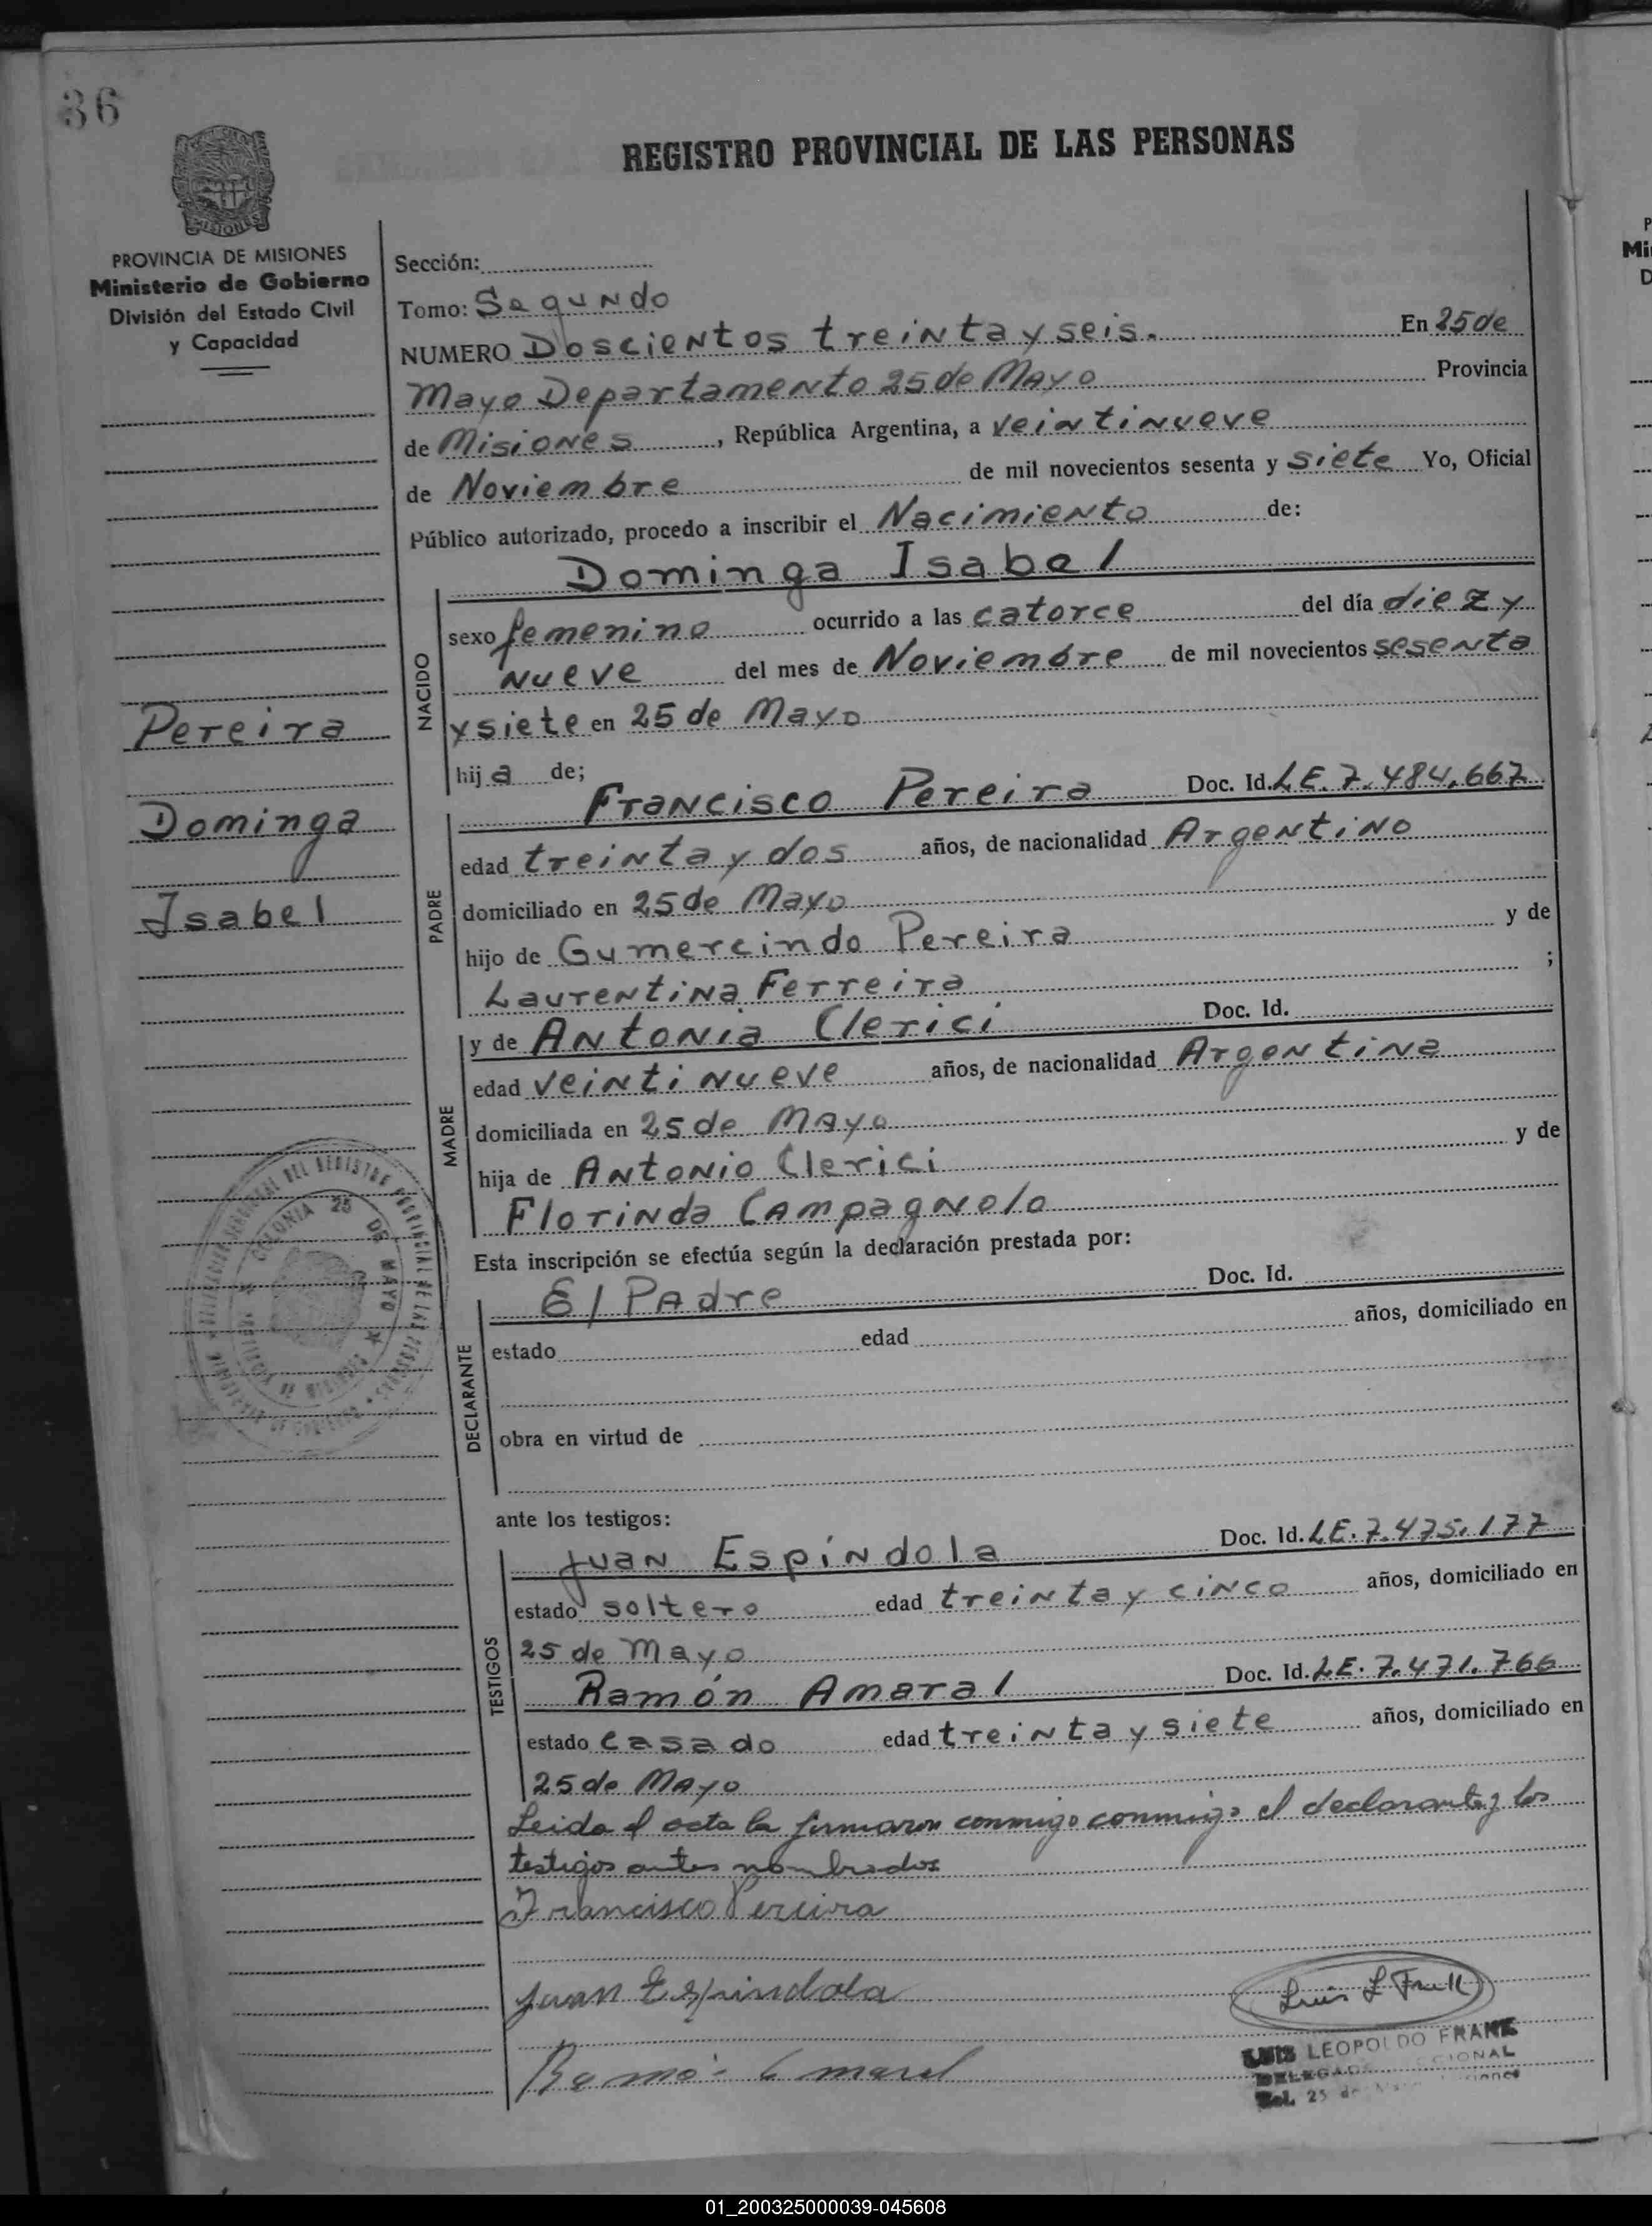 36
REGISTRO PROVINCIAL DE LAS PERSONAS
PROVINCIA DE MISIONES
Ministerio de Gobierno
División del Estado Civil
y Capacidad
Pereira
Dominga
Isabel
Sección:
Tomo: Segundo
NUMERO Doscientos treinta y seis. En 25 de
Mayo Departamento 25 de Mayo Provincia
de Misiones, República Argentina, a veintinueve
de Noviembre de mil novecientos sesenta y siete Yo, Oficial
Público autorizado, procedo a inscribir el Nacimiento de:
NACIDO
Dominga Isabel
sexo femenino ocurrido a las catorce del día diez y
nueve del mes de Noviembre de mil novecientos sesenta
y siete en 25 de Mayo
hija de;
PADRE
Francisco Pereira Doc. Id. LE. 7.484.667
edad treinta y dos años, de nacionalidad Argentino
domiciliado en 25 de Mayo
hijo de Gumercindo Pereira y de
Laurentina Ferreira ;
MADRE
y de Antonia Clerici Doc. Id.
edad veintinueve años, de nacionalidad Argentina
domiciliada en 25 de Mayo
hija de Antonio Clerici y de
Florinda Campagnolo
Esta inscripción se efectúa según la declaración prestada por:
DECLARANTE
El Padre Doc. Id.
estado edad años, domiciliado en
obra en virtud de
ante los testigos:
TESTIGOS
Juan Espíndola Doc. Id. LE. 7.475.177
estado soltero edad treinta y cinco años, domiciliado en
25 de Mayo
Ramón Amaral Doc. Id. LE. 7.471.766
estado casado edad treinta y siete años, domiciliado en
25 de Mayo
Leida el acta la firmaron conmigo conmigo el declarante y los
testigos antes nombrados
Francisco Pereira
Juan Espindola
Luis L Frank
LUIS LEOPOLDO FRANK
COLONIA 25 DE MAYO
01_200325000039-045608